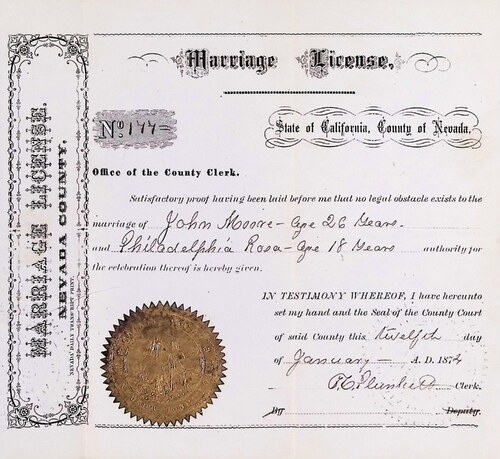 Marriage License.
No 177=
State of California, County of Nevada.
Office of the County Clerk.
Satisfactory proof having been laid before me that no legal obstacle exists to the
marriage of John Moore - age 26 Years.
and Philadelphia Rosa - age 18 Years authority for
the celebration thereof is hereby given.
IN TESTIMONY WHEREOF, I have hereunto
set my hand and the Seal of the County Court
of said County this twelfth day
of January - A. D. 1872
Clerk.
By Deputy.
MARRIAGE LICENSE.
NEVADA COUNTY.
NEVADA DAILY TRANSCRIPT PRINT.